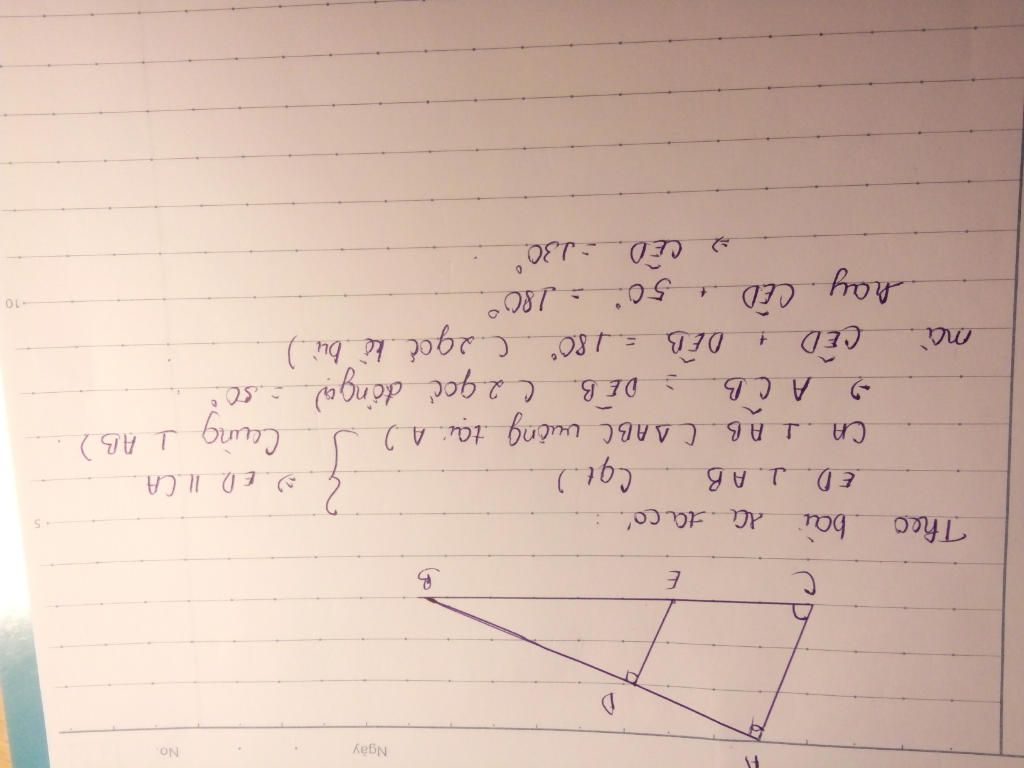 Ngày
No.
A
D
C
E
B
Theo bài ra ta có :
5
ED ⊥ AB (gt)
CA ⊥ AB (ΔABC vuông tại A) } ⇒ ED // CA
(cùng ⊥ AB)
⇒ AĈB = DÊB (2 góc đồng vị) = 50°
mà CÊD + DÊB = 180° (2 góc kề bù)
hay CÊD + 50° = 180°
10
⇒ CÊD = 130°